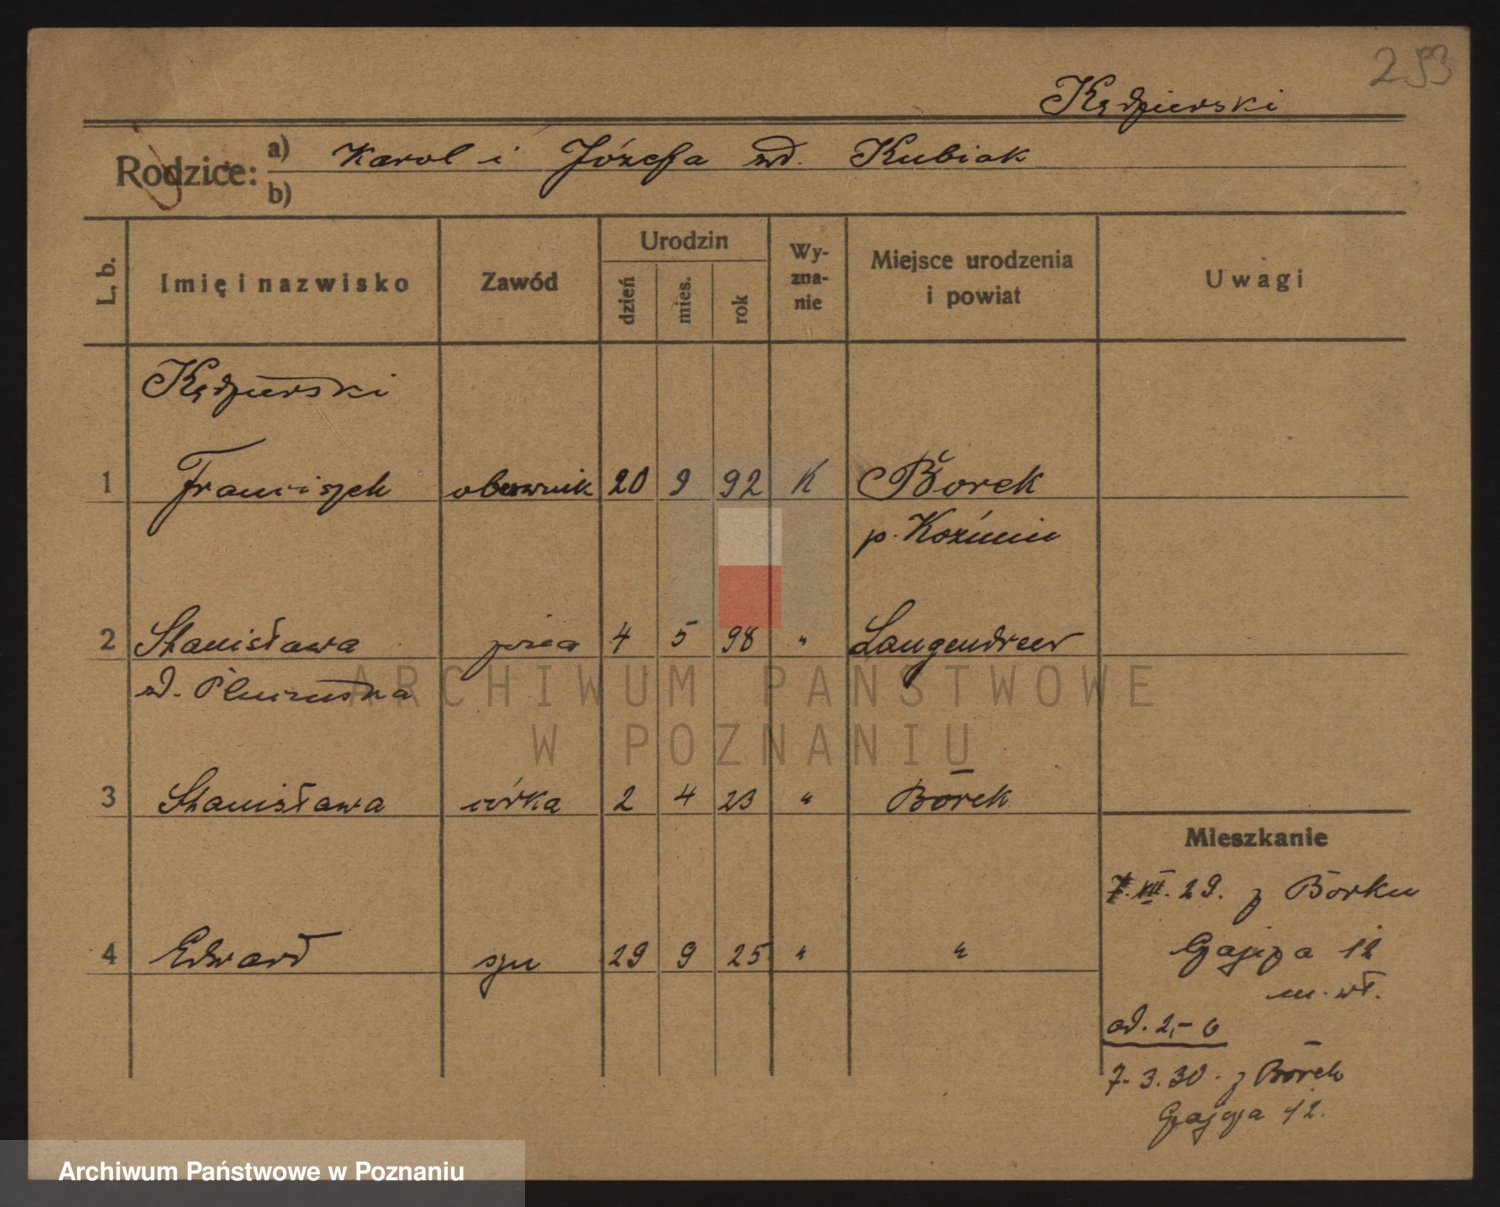 253
Kędzierski
Rodzice: a) Karol i Józefa zd. Kubiak
b)
L. b. Imię i nazwisko Zawód Urodzin dzień mies. rok Wyznanie Miejsce urodzenia i powiat Uwagi
Kędzierski
1 Franciszek 20 9 92 K Borek
p. Koźmin
2 Stanisława żona 4 5 98 " Langendreer
zd.
3 Stanisława córka 2 4 23 " Borek
4 Edward syn 29 9 25 " "
Mieszkanie
7.VIII.29. z Borku
Gajowa 12
m. wł.
od. 2,- 6
7.3.30. z Borek
Gajowa 12.
ARCHIWUM PAŃSTWOWE
W POZNANIU
Archiwum Państwowe w Poznaniu